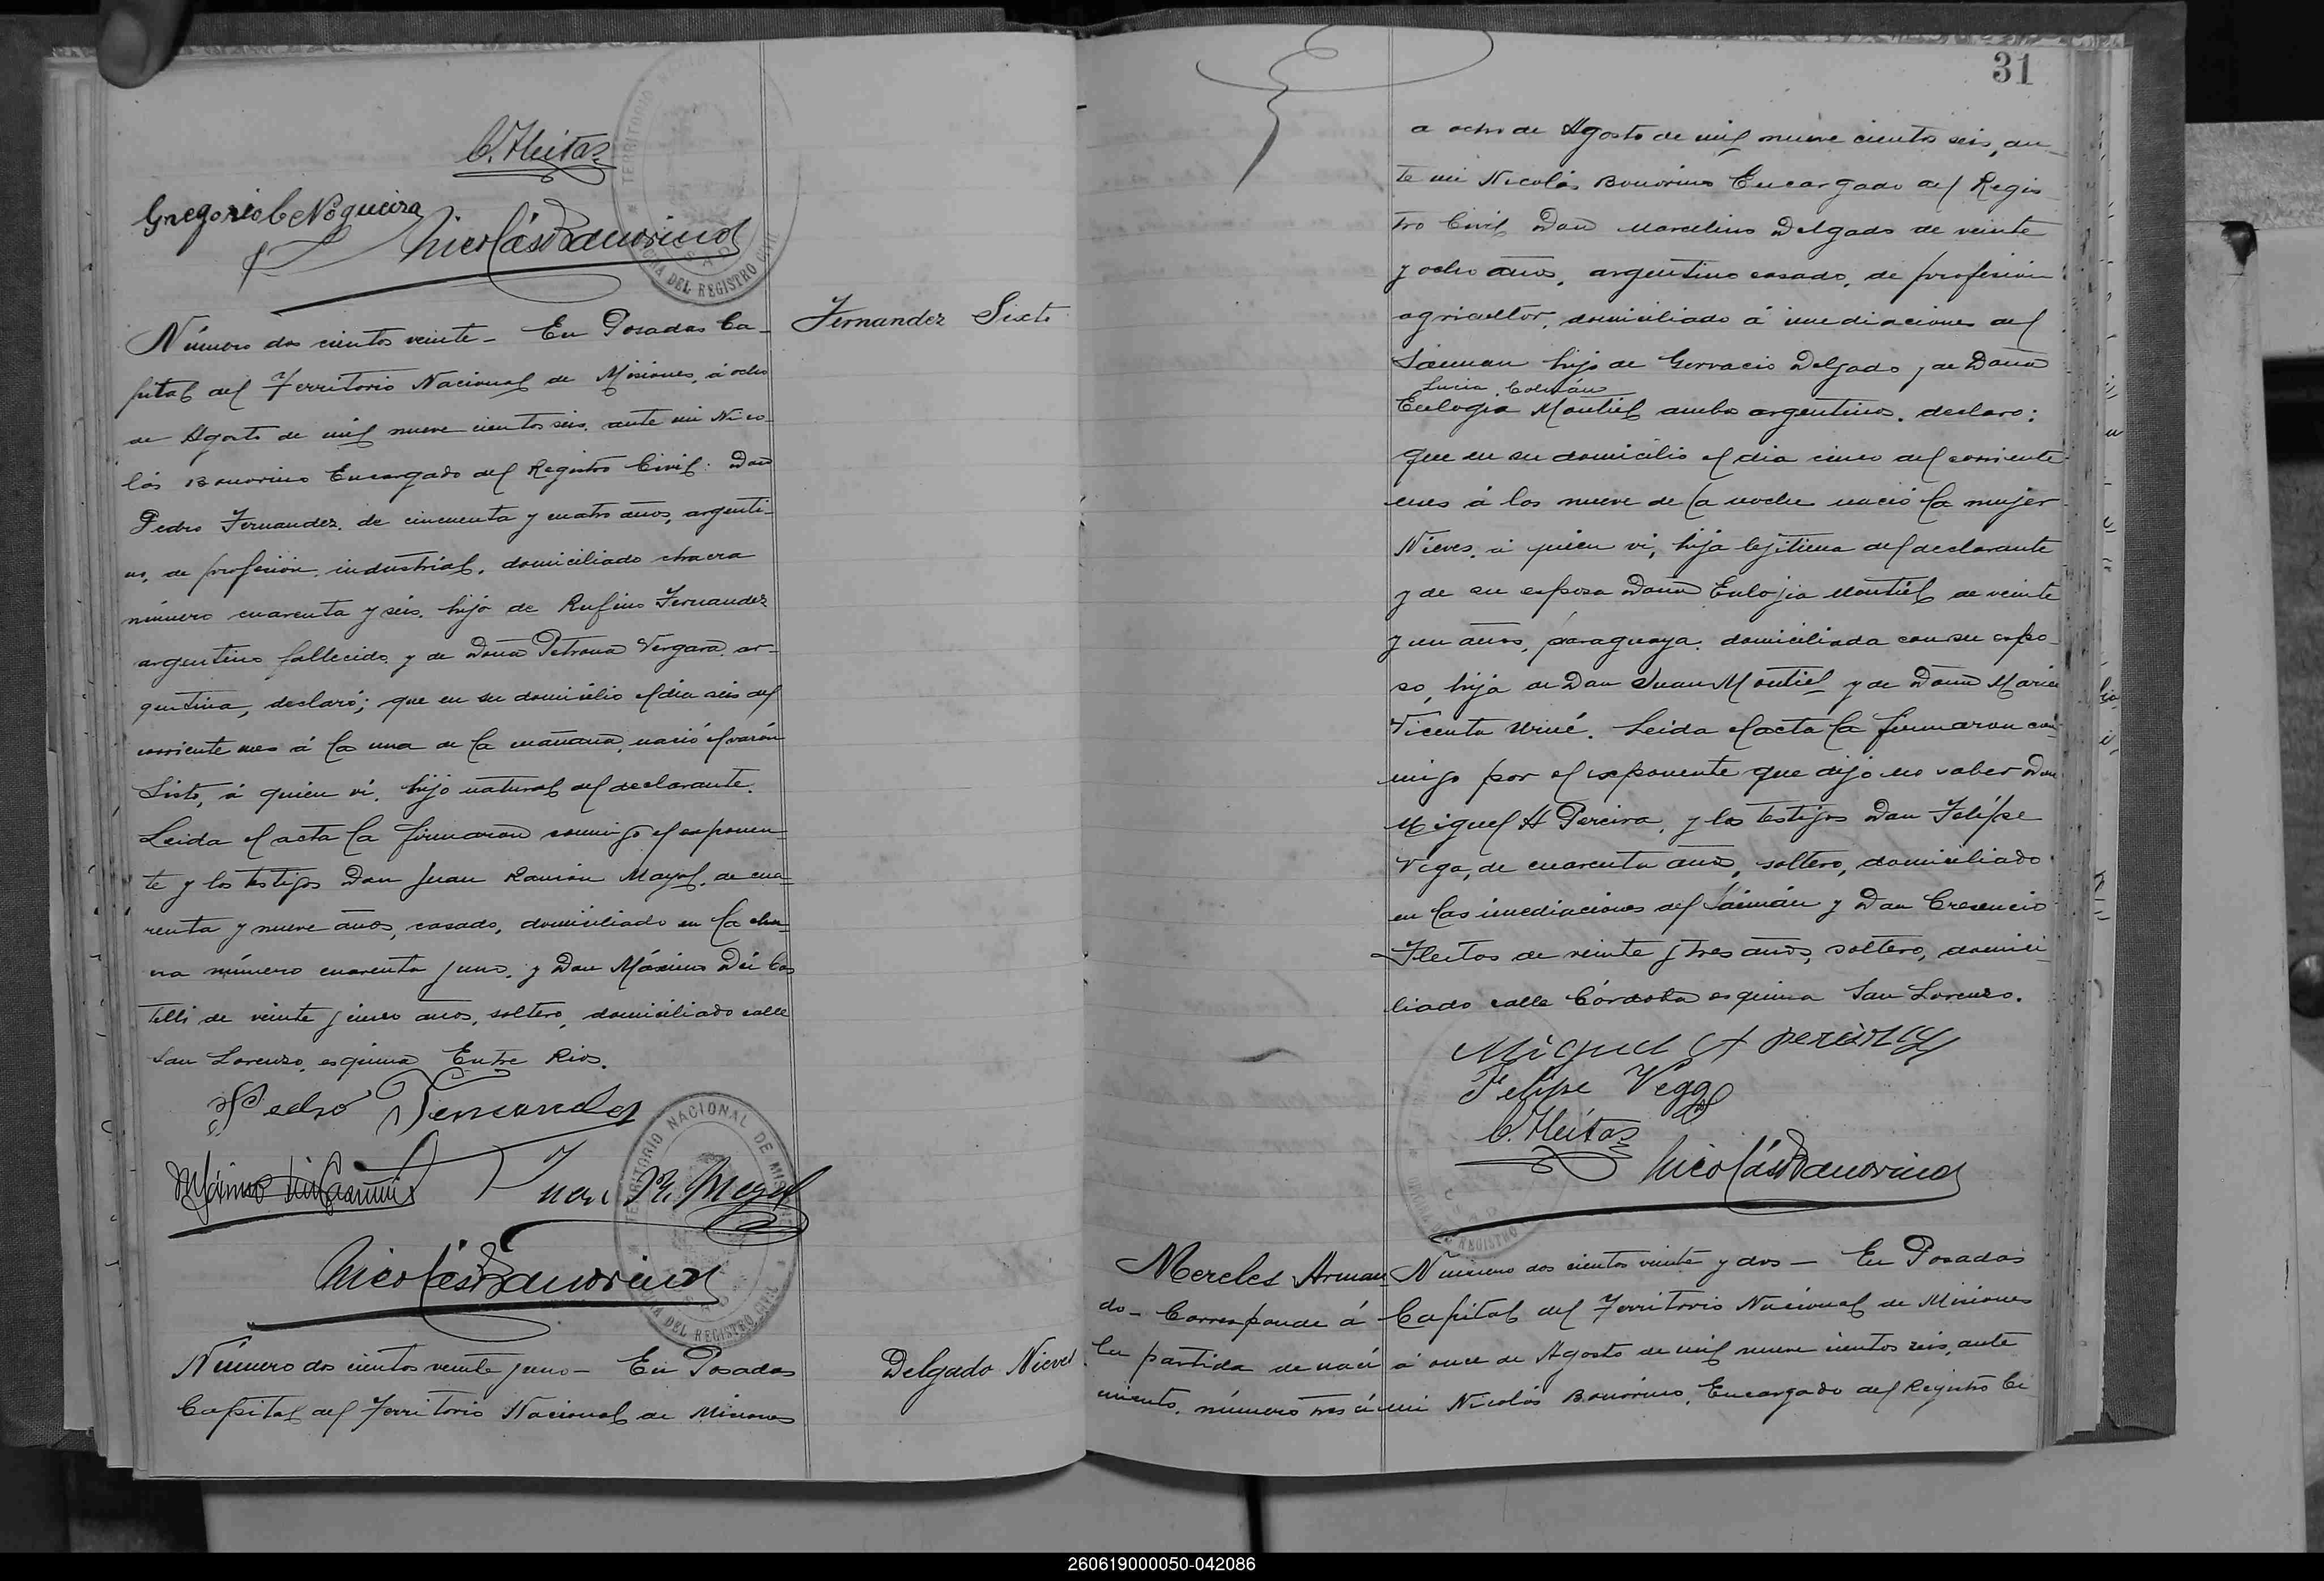 C. Fleitas
Gregorio C Nogueira
Nicolás Bonorino
Fernandez Sixto
Número dos cientos veinte - En Posadas Ca-
pital del Territorio Nacional de Misiones, á ocho
de Agosto de mil nueve cientos seis, ante mi Nico-
lás Bonorino Encargado del Registro Civil: Don
Pedro Fernandez, de cincuenta y cuatro años, argenti-
no, de profesión industrial, domiciliado chacra
número cuarenta y seis, hijo de Rufino Fernandez
argentino fallecido y de Doña Petrona Vergara, ar-
gentina, declaró; que en su domicilio el dia seis del
corriente mes á la una de la mañana, nació el varón
Sisto, á quien vi, hijo natural del declarante.
Leida el acta la firmaron conmigo el exponen-
te y los testigos Don Juan Ramón Mayol, de cua-
renta y nueve años, casado, domiciliado en la cha-
cra número cuarenta y uno, y Don Máximo Dei Cas
telli de veinte y cinco años, soltero, domiciliado calle
San Lorenzo, esquina Entre Rios.
Pedro Fernandez
Juan R. Mayol
Nicolás Bonorino
TERRITORIO NACIONAL DE MISIONES
DEL REGISTRO CIVIL
Delgado Nieves
Número dos cientos veinte y uno - En Posadas
Capital del Territorio Nacional de Misiones
31
a ocho de Agosto de mil nueve cientos seis, an-
te mi Nicolás Bonorino Encargado del Regis
tro Civil Don Marcelino Delgado de veinte
y ocho años, argentino casado, de profesión
agricultor, domiciliado á inmediaciones del
Zaiman hijo de Gervacio Delgado y de Doña
Lucia Colmán
Eulogia Montiel ambos argentinos, declaro:
que en su domicilio el dia cinco del corriente
mes á las nueve de la noche nació la mujer
Nieves, á quien vi, hija lejitima del declarante
y de su esposa Doña Eulojia Montiel de veinte
y un años, paraguaya, domiciliada con su espo
so, hija de Don Juan Montiel y de Doña Maria
Vicenta Leida el acta la firmaron con-
migo por el exponente que dijo no saber Don
Miguel A Pereira, y los testigos Don Felipe
Vega, de cuarenta años, soltero, domiciliado
en las inmediaciones del Zaimán y Don Cresencio
Fleitas de veinte y tres años, soltero, domici
liado calle Córdoba esquina San Lorenzo.
Miguel A pereira
Felipe Vega
C. Fleitas
Nicolás Bonorino
Mereles Arman
do - Corresponde á
la partida de naci
miento, número tres ci
Número dos cientos veinte y dos - En Posadas
Capital del Territorio Nacional de Misiones
á once de Agosto de mil nueve cientos seis, ante
mi Nicolás Bonorino, Encargado del Registro Ci
260619000050-042086